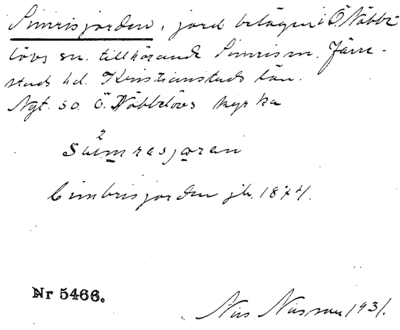 Simrisjorden, jord belägen i Ö Näbbe
lövs sn. tillhörande Simris sn. Järre-
stads hd. Kristianstads län.
Ngt. so. Ö. Nöbbelövs kyrka
2
Cimbrisjorden jb. 1874.
Nr 5466.
Nils Nilsson 1931.